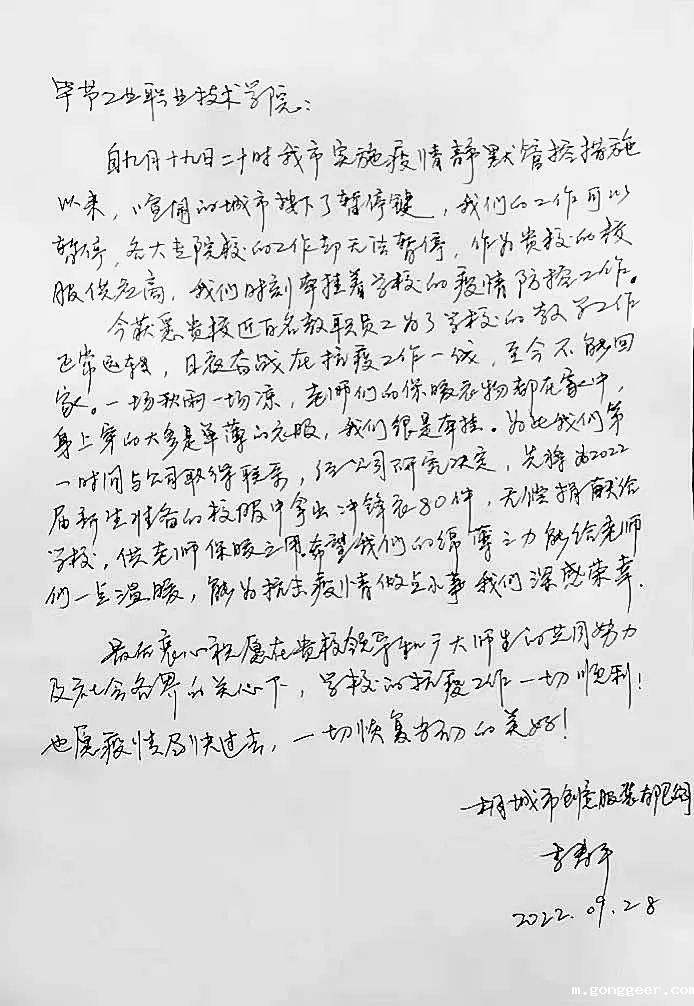 毕节工业职业技术学院:
自九月十九日二十时我市实施疫情静默管控措施
以来,喧闹的城市按下了暂停键,我们的工作可以
暂停,各大专院校的工作却无法暂停,作为贵校的校
服供应商,我们时刻牵挂着学校的疫情防控工作。
今获悉贵校近百名教职员工为了学校的教学工作
正常运转,日夜奋战在抗疫工作一线,至今不能回
家。一场秋雨一场凉,老师们的保暖衣物都在家中,
身上穿的大多是单薄的衣服,我们很是牵挂。为此我们第
一时间与公司取得联系,经公司研究决定,先将为2022
届新生准备的校服中拿出冲锋衣80件,无偿捐献给
学校,供老师保暖之用。希望我们的绵薄之力能给老师
们一点温暖,能为抗击疫情做点小事我们深感荣幸.
最后衷心祝愿在贵校领导和广大师生的共同努力
及社会各界的关心下,学校的抗疫工作一切顺利!
也愿疫情尽快过去,一切恢复如初的美好!
城市创意服装有限公司
2022.09.28
m.gonggeer.com